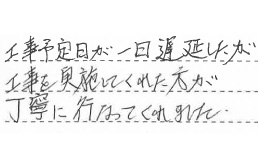 工事予定日が一日遅延したが
工事を実施してくれた方が
丁寧に行なってくれました.